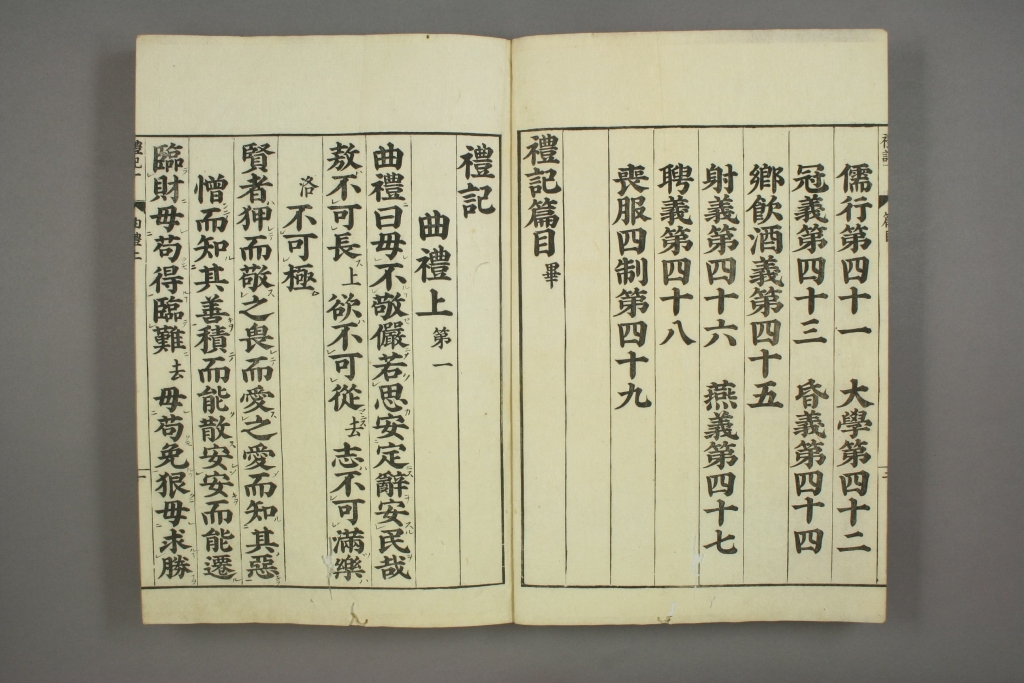 儒行第四十一　大學第四十二
冠義第四十三　昏義第四十四
鄉飲酒義第四十五
射義第四十六　燕義第四十七
聘義第四十八
喪服四制第四十九
禮記篇目畢
禮記
曲禮上第一
曲禮曰毋不敬儼若思安定辭安民哉
敖不可長上欲不可從去志不可滿樂
洛不可極。
賢者狎而敬之畏而愛之愛而知其惡
憎而知其善積而能散安安而能遷
臨財毋苟得臨難去毋苟免狠毋求勝